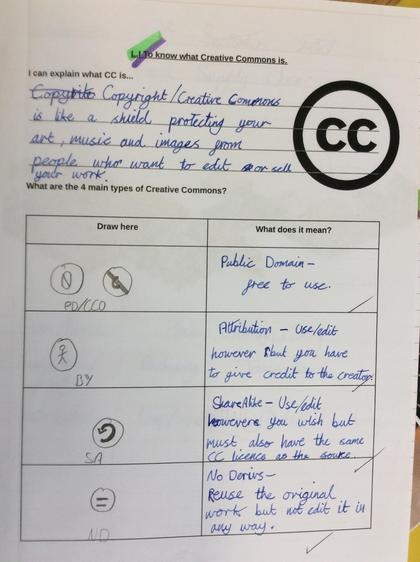 L.I To know what Creative Commons is.
I can explain what CC is...
Copyrite Copyright/Creative Commons
is like a shield protecting your
art, music and images from
people who want to edit or sell
your work.
CC
What are the 4 main types of Creative Commons?
Draw here
What does it mean?
Public Domain -
free to use.
PD/CC0
Attribution - Use/edit
however but you have
to give credit to the creator.
BY
ShareAlike - Use/edit
however you wish but
must also have the same
CC licence as the source.
SA
No Derivs -
Reuse the original
work but not edit it in
any way.
ND